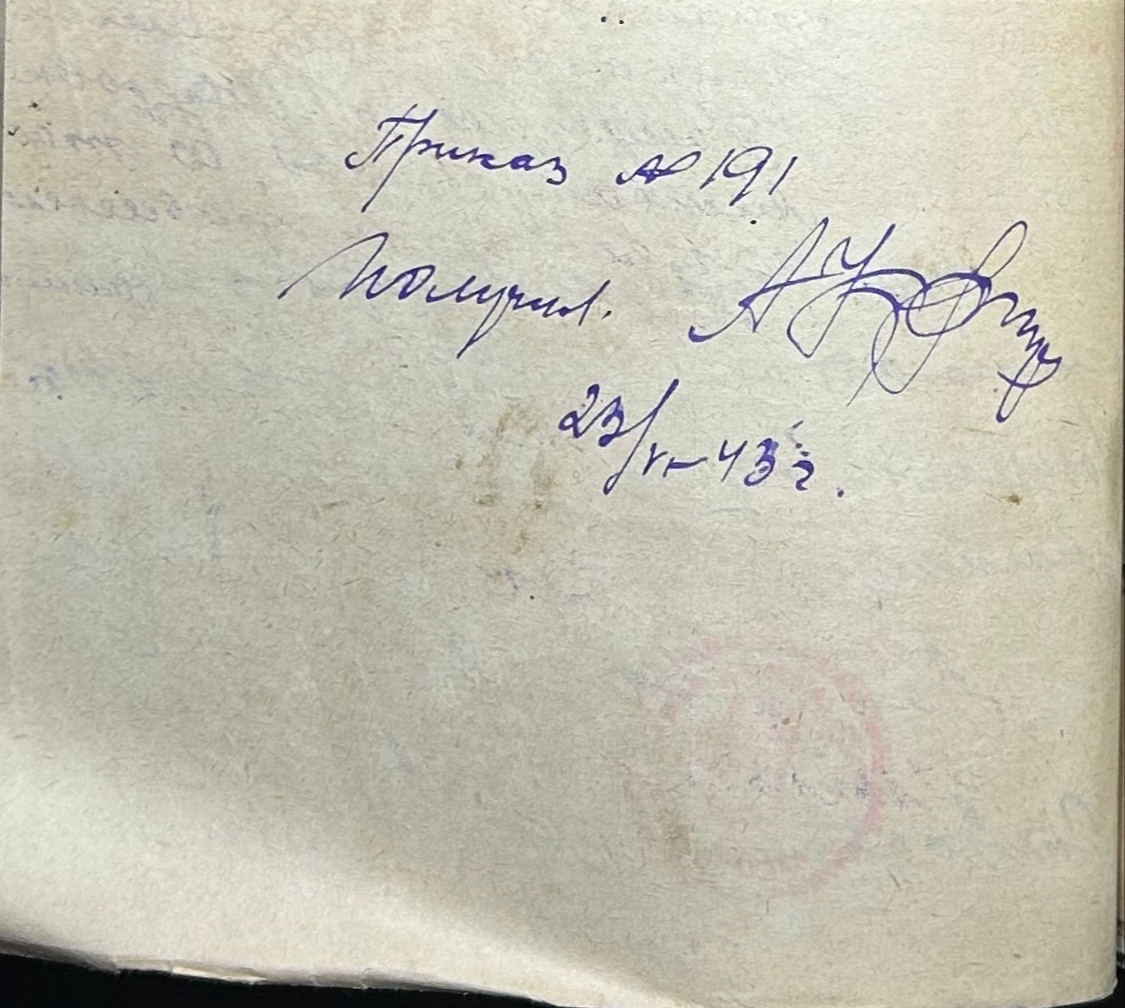 Приказ № 191
Получил.
23/VI-43 г.